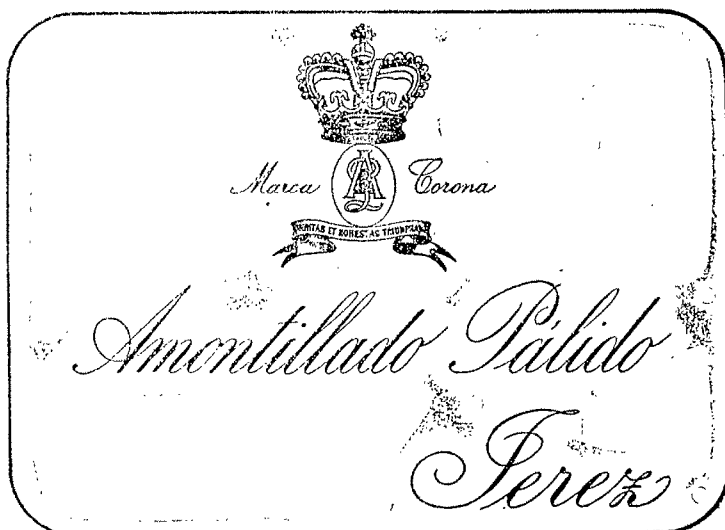 Marca Corona
VERITAS ET HONESTAS TRIUMPHANT
Amontillado Pálido
Jerez